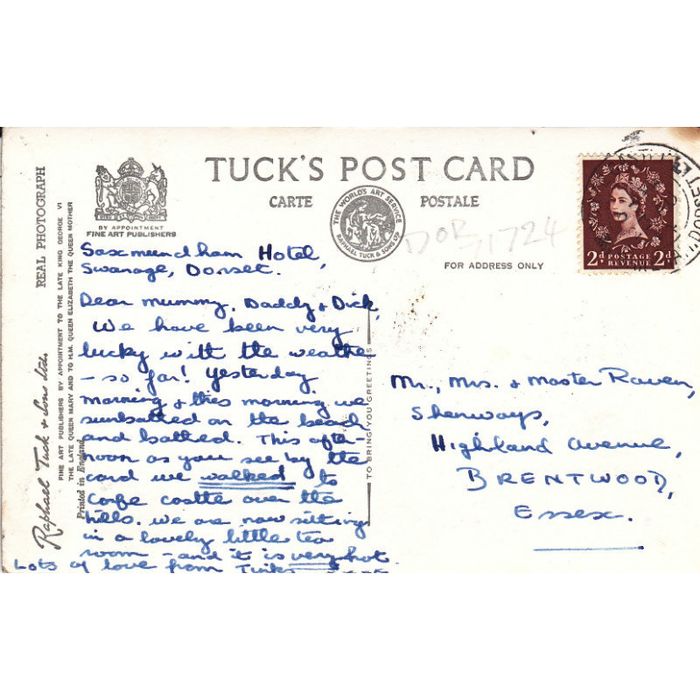 TUCK'S POST CARD
CARTE POSTALE
BY APPOINTMENT
FINE ART PUBLISHERS
THE WORLD'S ART SERVICE
RAPHAEL TUCK & SONS LTD
FOR ADDRESS ONLY
DOR 1724
2d POSTAGE REVENUE 2d
REAL PHOTOGRAPH
Raphael Tuck & Sons Ltd.
FINE ART PUBLISHERS BY APPOINTMENT TO THE LATE KING GEORGE VI
THE LATE QUEEN MARY AND TO H.M. QUEEN ELIZABETH THE QUEEN MOTHER
Printed in England
TO BRING YOU GREETINGS
Saxmeendham Hotel,
Swanage, Dorset.
Dear mummy, Daddy & Dick,
We have been very
lucky with the weather
- so far! Yesterday
morning & this morning we
sunbathed on the beach
and bathed. This after-
noon as you see by the
card we walked to
Corfe castle over the
hills. We are now sitting
in a lovely little tea
room - and it is very hot
Lots of love from
Mr., Mrs. & Master Raven,
Shenways,
Highland Avenue,
BRENTWOOD,
Essex.